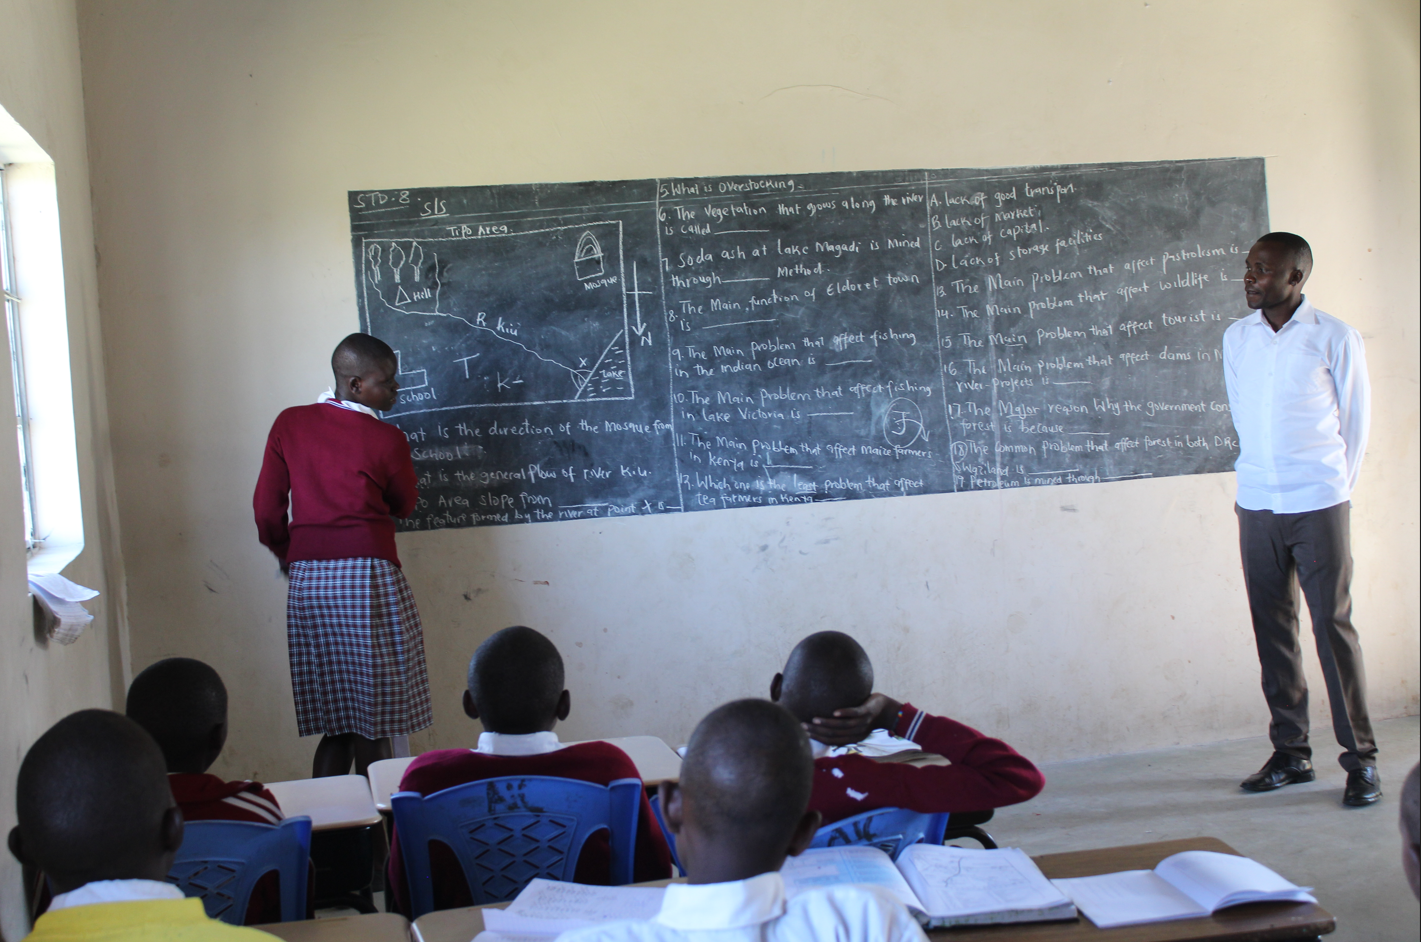 STD. 8
S/S
Tipo Area.
Mosque
Hill
R. Kiu
N
X
T
K
Lake
School
hat Is the direction of the Mosque from
School?
at is the general flow of river Kiu.
po Area slope from ______
he feature formed by the river at point X is __
5. What is Overstocking.
6. The Vegetation that grows along the river
is called ______
7. Soda ash at Lake Magadi is Mined
through ______ Method.
8. The Main function of Eldoret town
is ______
9. The Main Problem that affect fishing
in the indian ocean is ______
10. The Main Problem that affect fishing
in Lake Victoria is ______
11. The Main Problem that affect Maize farmers
in Kenya is ______
12. Which one is the least problem that affect
tea farmers in Kenya ______
A. lack of good transport.
B. lack of market.
C. lack of capital.
D. Lack of storage facilities
13. The Main problem that affect pastrolesm is
14. The Main Problem that affect wildlife is
15. The Main Problem that affect tourist is
16. The Main problem that affect dams in
river-projects is ______
17. The Major reason Why the government
forest is because ______
18. The common problem that affect forest in both D.R.C
is ______
Petroleum is mined through ______
AIC
AIC